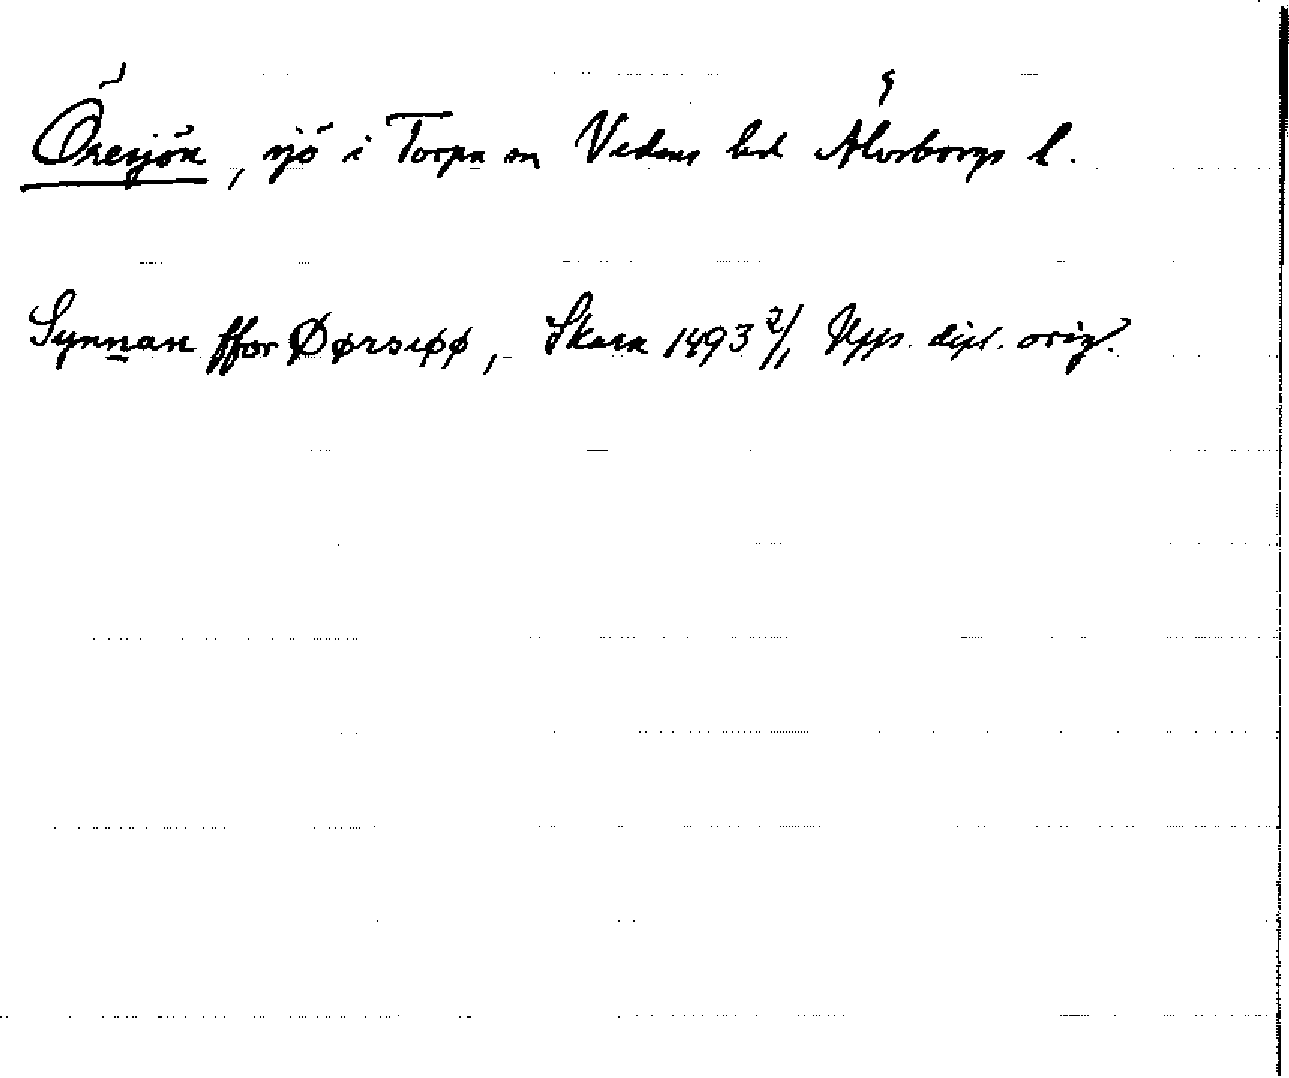 Öresjön, sjö i Torpa sn Vedens hd Älvsborgs l.
Synnan ffor Øørsiøø, Skara 1493 2/1 Upps. dipl. orig.